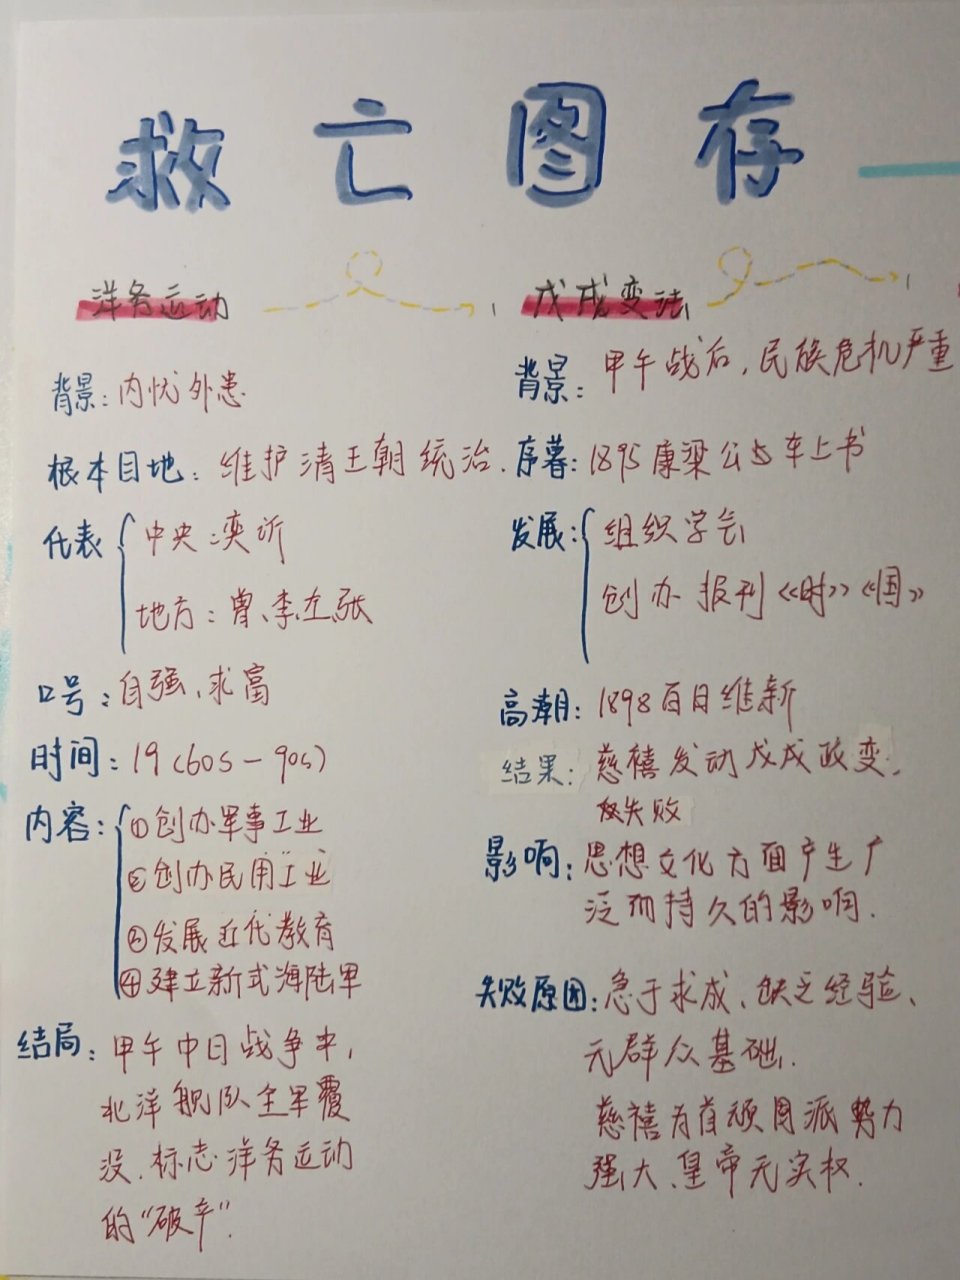 救亡图存
洋务运动
背景：内忧外患
根本目地：维护清王朝统治.
代表
中央：奕訢
地方：曾、李、左、张
口号：自强、求富
时间：19（60s－90s）
内容：①创办军事工业
②创办民用工业
③发展近代教育
④建立新式海陆军
结局：甲午中日战争中，
北洋舰队全军覆
没.标志洋务运动
的“破产”.
戊戌变法
背景：甲午战后，民族危机严重
序幕：1895康梁公车上书
发展：组织学会
创办报刊《时》《国》
高潮：1898百日维新
结果：慈禧发动戊戌政变.
失败
影响：思想文化方面产生广
泛而持久的影响.
失败原因：急于求成、缺乏经验、
无群众基础.
慈禧为首顽固派势力
强大、皇帝无实权.